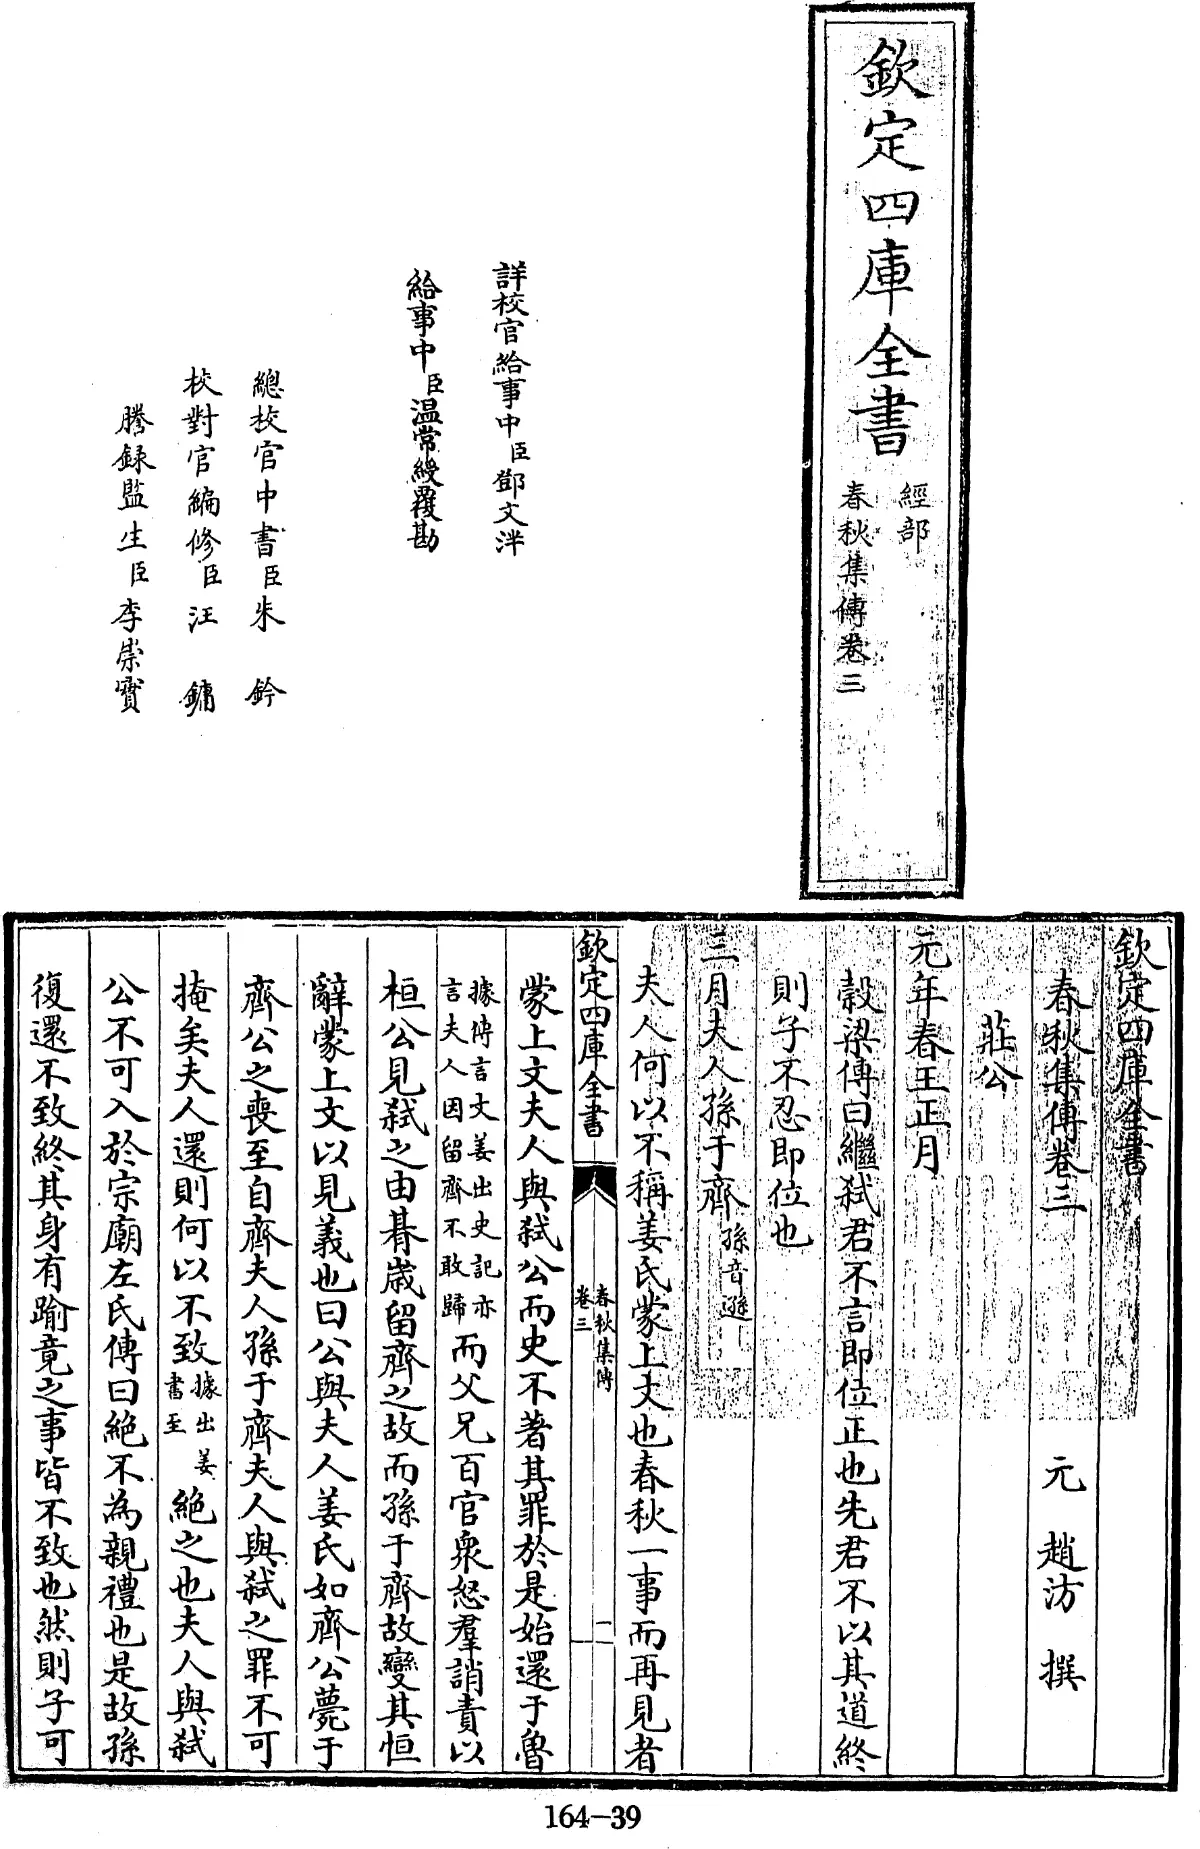 欽定四庫全書
經部
春秋集傳卷三
詳校官給事中臣鄧文泮
給事中臣温常綬覆勘
總校官中書臣朱鈐
校對官編修臣汪鏞
謄録監生臣李崇寳
欽定四庫全書
春秋集傳卷三
元 趙汸 撰
莊公
元年春王正月
穀梁傳曰繼弑君不言即位正也先君不以其道終
則子不忍即位也
三月夫人孫于齊孫音遜
夫人何以不稱姜氏蒙上文也春秋一事而再見者
欽定四庫全書
春秋集傳
卷三
一
蒙上文夫人與弑公而史不著其罪於是始還于魯
據傳言文姜出史記亦言夫人因留齊不敢歸而父兄百官衆怒羣誚責以
桓公見弑之由朞歲留齊之故而孫于齊故變其恒
辭蒙上文以見義也曰公與夫人姜氏如齊公薨于
齊公之喪至自齊夫人孫于齊夫人與弑之罪不可
掩矣夫人還則何以不致據出姜書至絶之也夫人與弑
公不可入於宗廟左氏傳曰絶不為親禮也是故孫
復還不致終其身有踰竟之事皆不致也然則子可
164-39